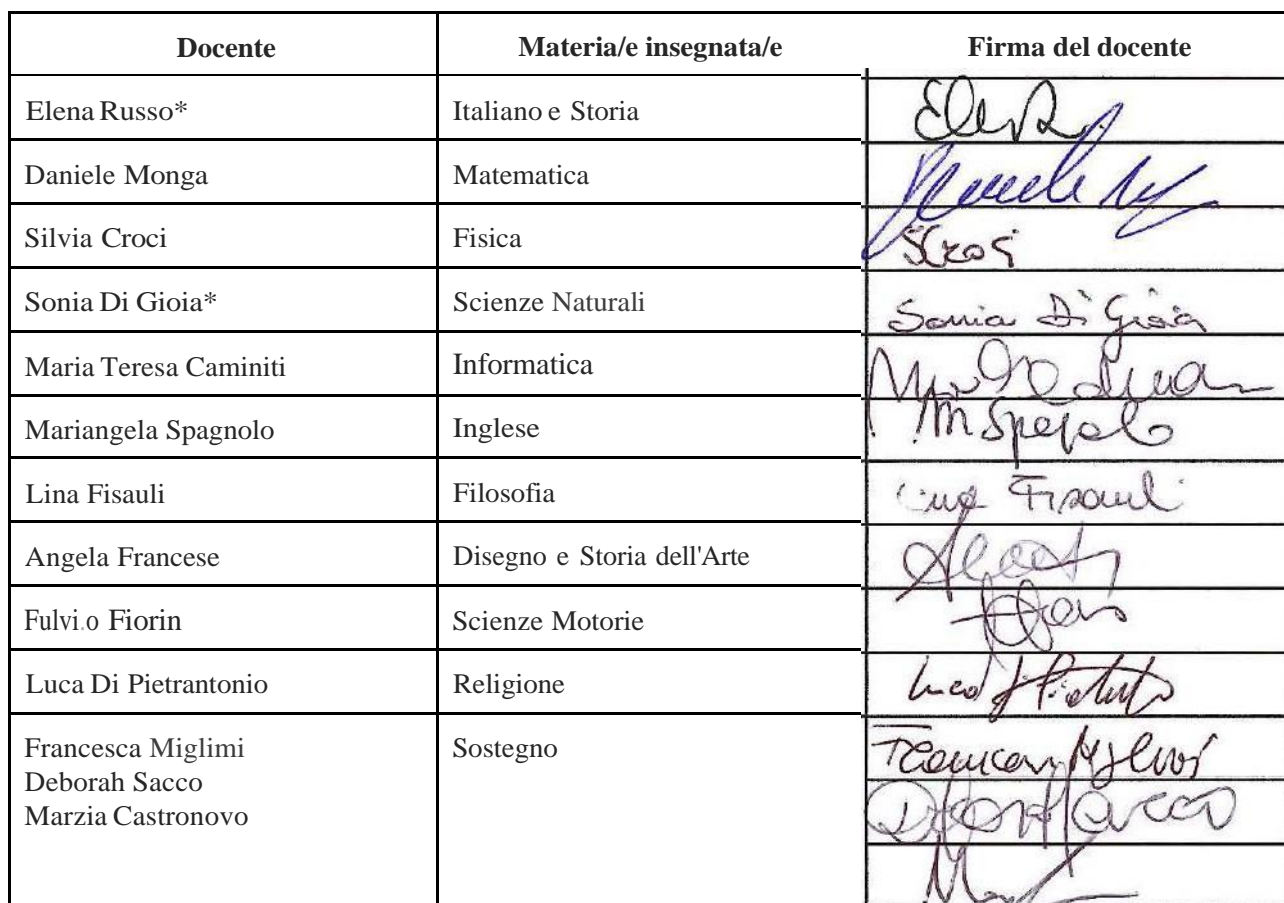 Docente Materia/e insegnata/e Firma del docente
Elena Russo* Italiano e Storia
Daniele Monga Matematica
Silvia Croci Fisica SCroci
Sonia Di Gioia* Scienze Naturali Sonia Di Gioia
Maria Teresa Caminiti Informatica
Mariangela Spagnolo Inglese MSpagnolo
Lina Fisauli Filosofia Lina Fisauli
Angela Francese Disegno e Storia dell'Arte
Fulvi.o Fiorin Scienze Motorie
Luca Di Pietrantonio Religione
Francesca Miglimi Sostegno
Deborah Sacco
Marzia Castronovo